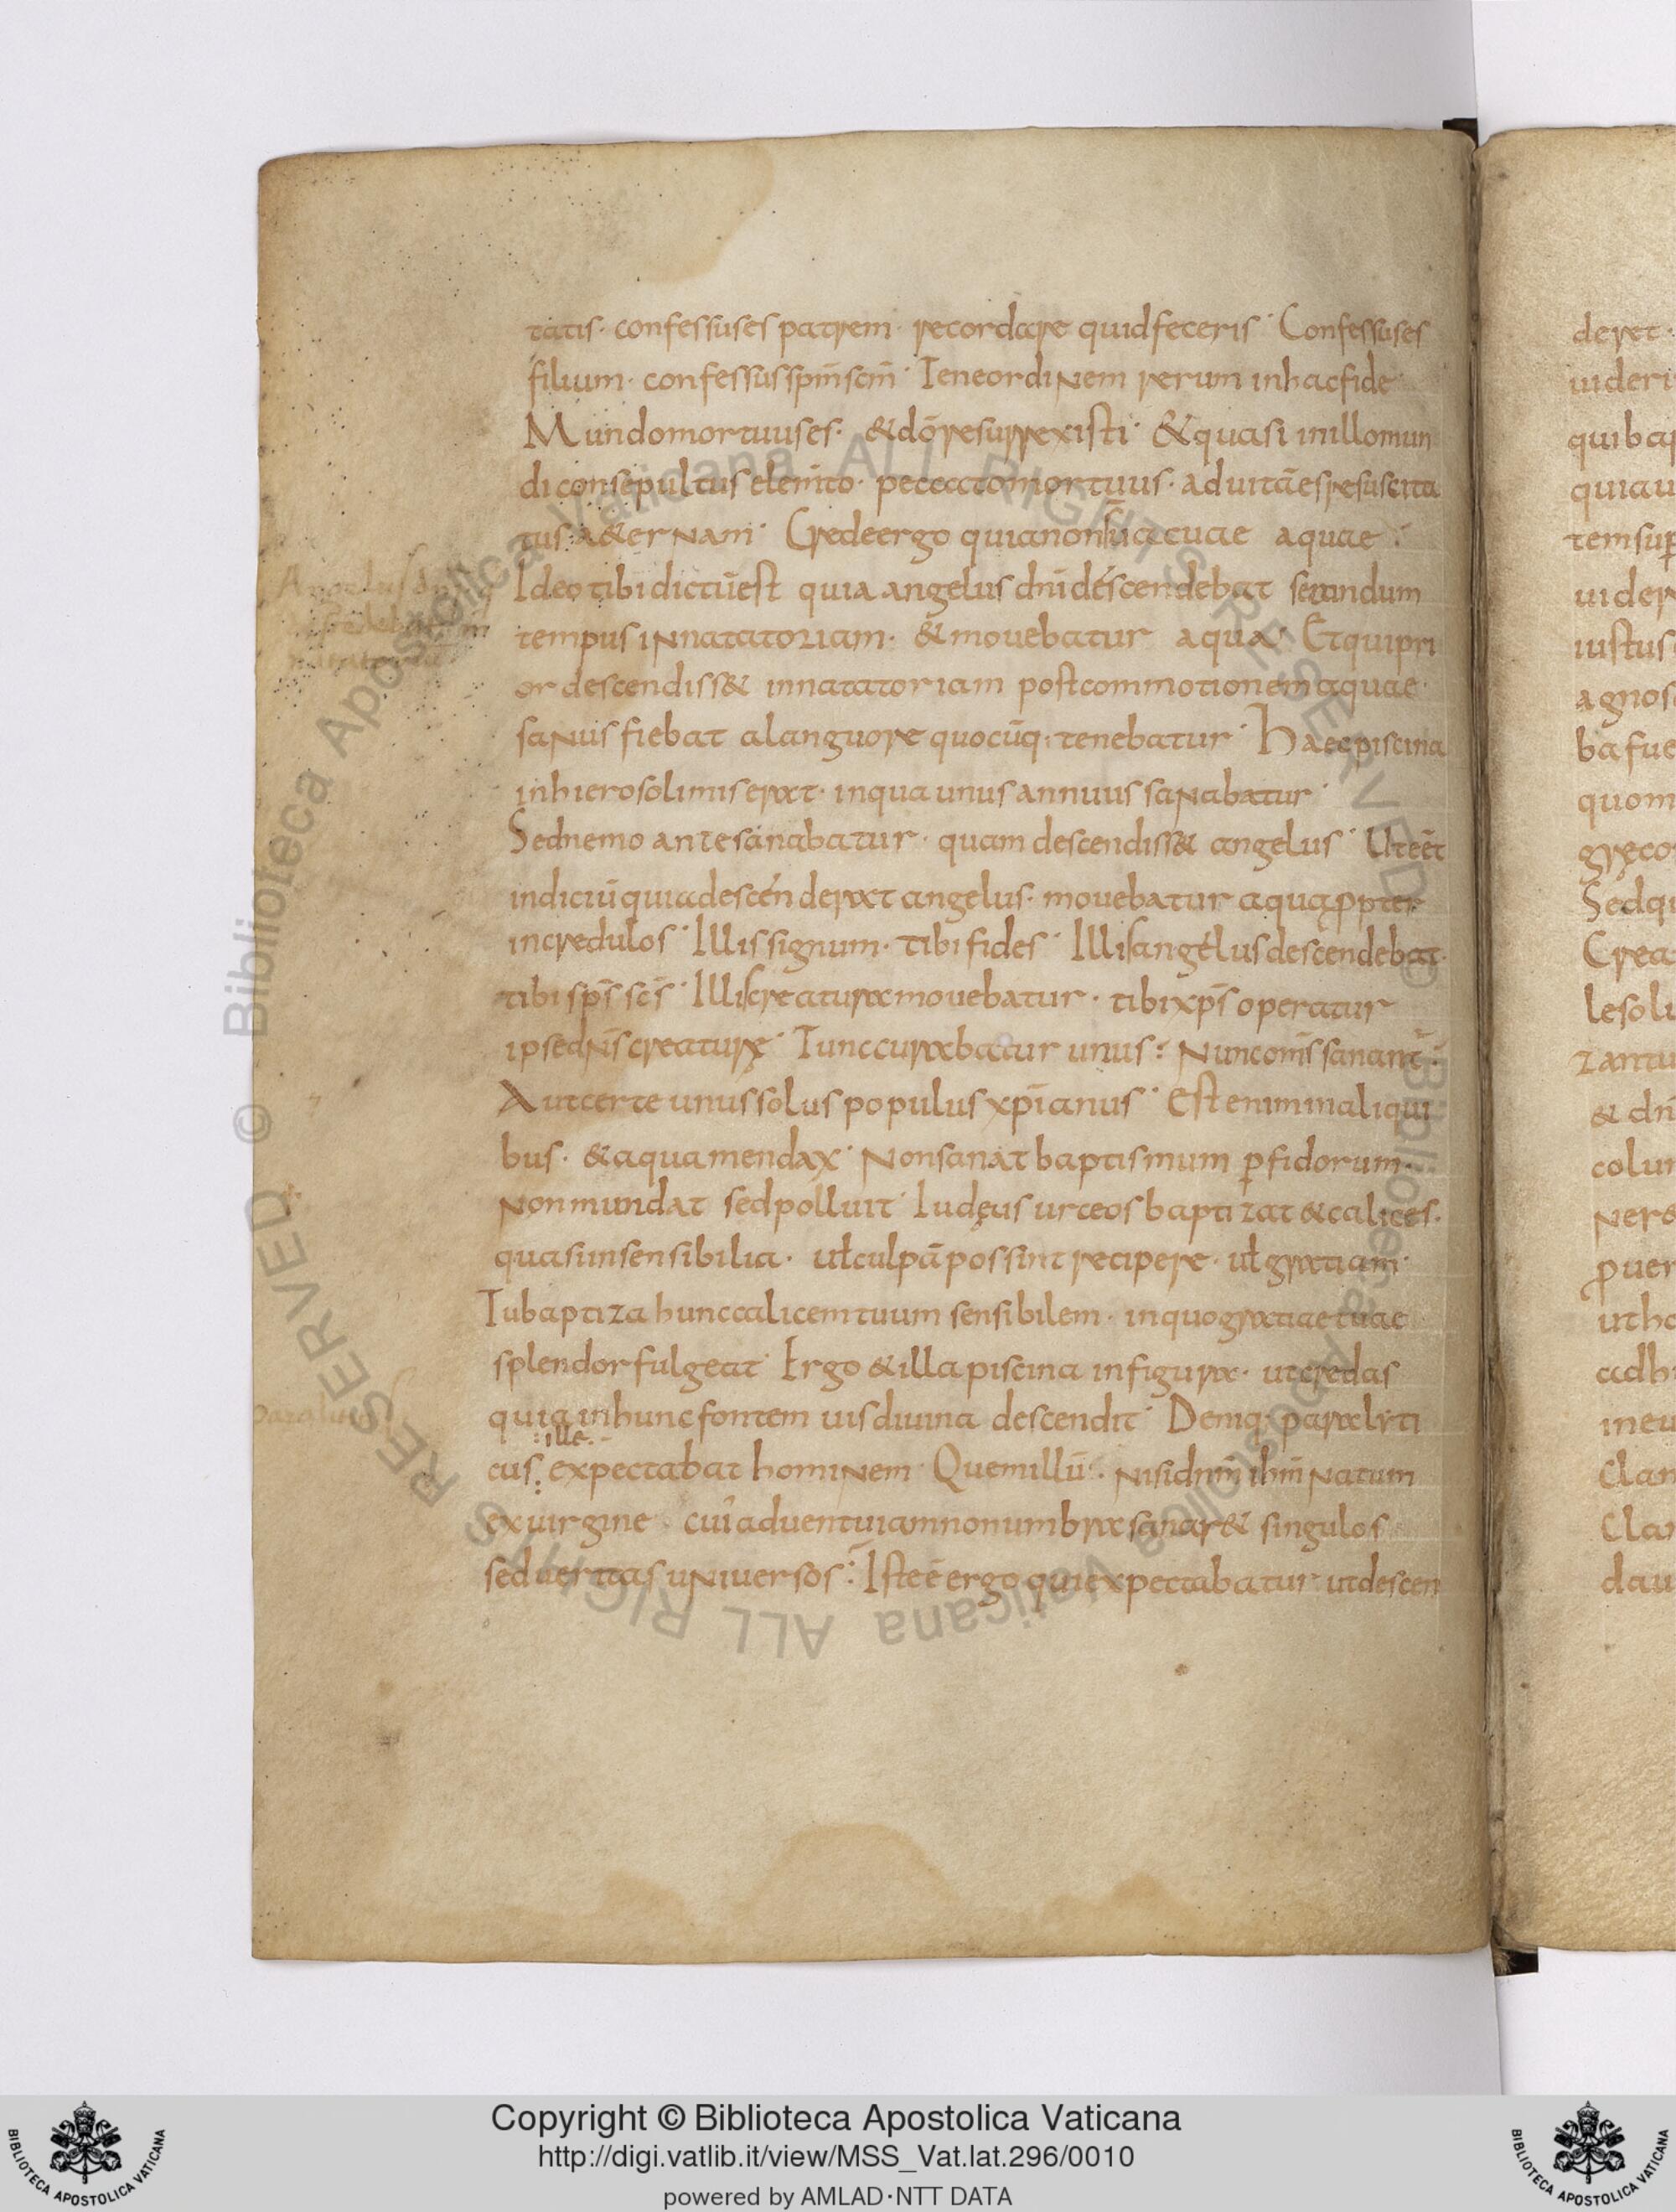 tatis· confessus es patrem· recordare quid feceris· Confessus es
filium· confessus spm̄ scm̄· Tene ordinem rerum in hac fide·
Mundo mortuus es· & dō resurrexisti· & quasi in illo mun
di consepultus elemto· peccato mortuus· ad uitā es resuscita
tus a&ernam· Crede ergo quia non s̄ uacuae aquae·
Ideo tibi dictū est quia angelus dn̄i descendebat secundum
tempus in natatoriam· & mouebatur aqua· Et qui pri
or descendiss& in natatoriam post commotionem aquae·
sanus fiebat a languore quocūq· tenebatur· Haec piscina
in hierosolimis erat· in qua unus annuus sanabatur·
Sed nemo ante sanabatur· quam descendiss& angelus· Ut eēt
indiciū quia descenderat angelus· mouebatur aqua ppter
incredulos· Illis signum· tibi fides· Illis angelus descendebat·
tibi sp̄s sc̄s· Illis creatura mouebatur· tibi xp̄s operatur
ipse dn̄s creaturę· Tunc curabatur unus: Nunc om̄s sanant̄:
Aut certe unus solus populus xp̄ianus· Est enim in aliqui
bus· & aqua mendax· Non sanat baptismum ꝑfidorum·
Non mundat sed polluit· Iudęus urceos baptizat & calices·
quasi insensibilia· uł culpā possint recipere· uł gratiam·
Tu baptiza hunc calicem tuum sensibilem· in quo gratiae tuae
splendor fulgeat· Ergo & illa piscina in figura· ut credas
quia in hunc fontem uis diuina descendit· Deniq· paralyti
:ille·
cus: expectabat hominem· Quem illū·. nisi dnm̄ ihm̄ natum
ex uirgine· cui aduentu iam non umbra sanar& singulos
sed ueritas uniuersos: Iste ē ergo qui expectabatur ut descen
Copyright © Biblioteca Apostolica Vaticana
http://digi.vatlib.it/view/MSS_Vat.lat.296/0010
powered by AMLAD·NTT DATA
BIBLIOTECA APOSTOLICA VATICANA
BIBLIOTECA APOSTOLICA VATICANA
© Biblioteca Apostolica Vaticana ALL RIGHTS RESERVED
© Biblioteca Apostolica Vaticana ALL RIGHTS RESERVED